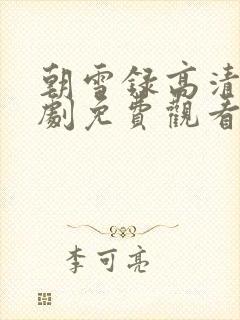 朝雪録高清
劇免費觀看
李可亮